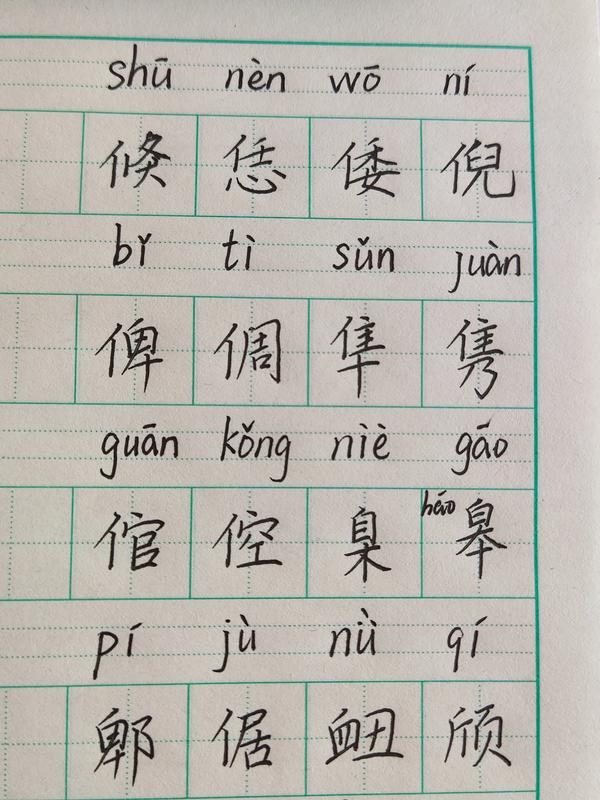 shū nèn wō ní
倏 恁 倭 倪
bǐ tì sǔn juàn
俾 倜 隼 隽
guān kǒng niè gāo
倌 倥 臬 皋
háo
pí jù nǜ qí
郫 倨 衄 颀